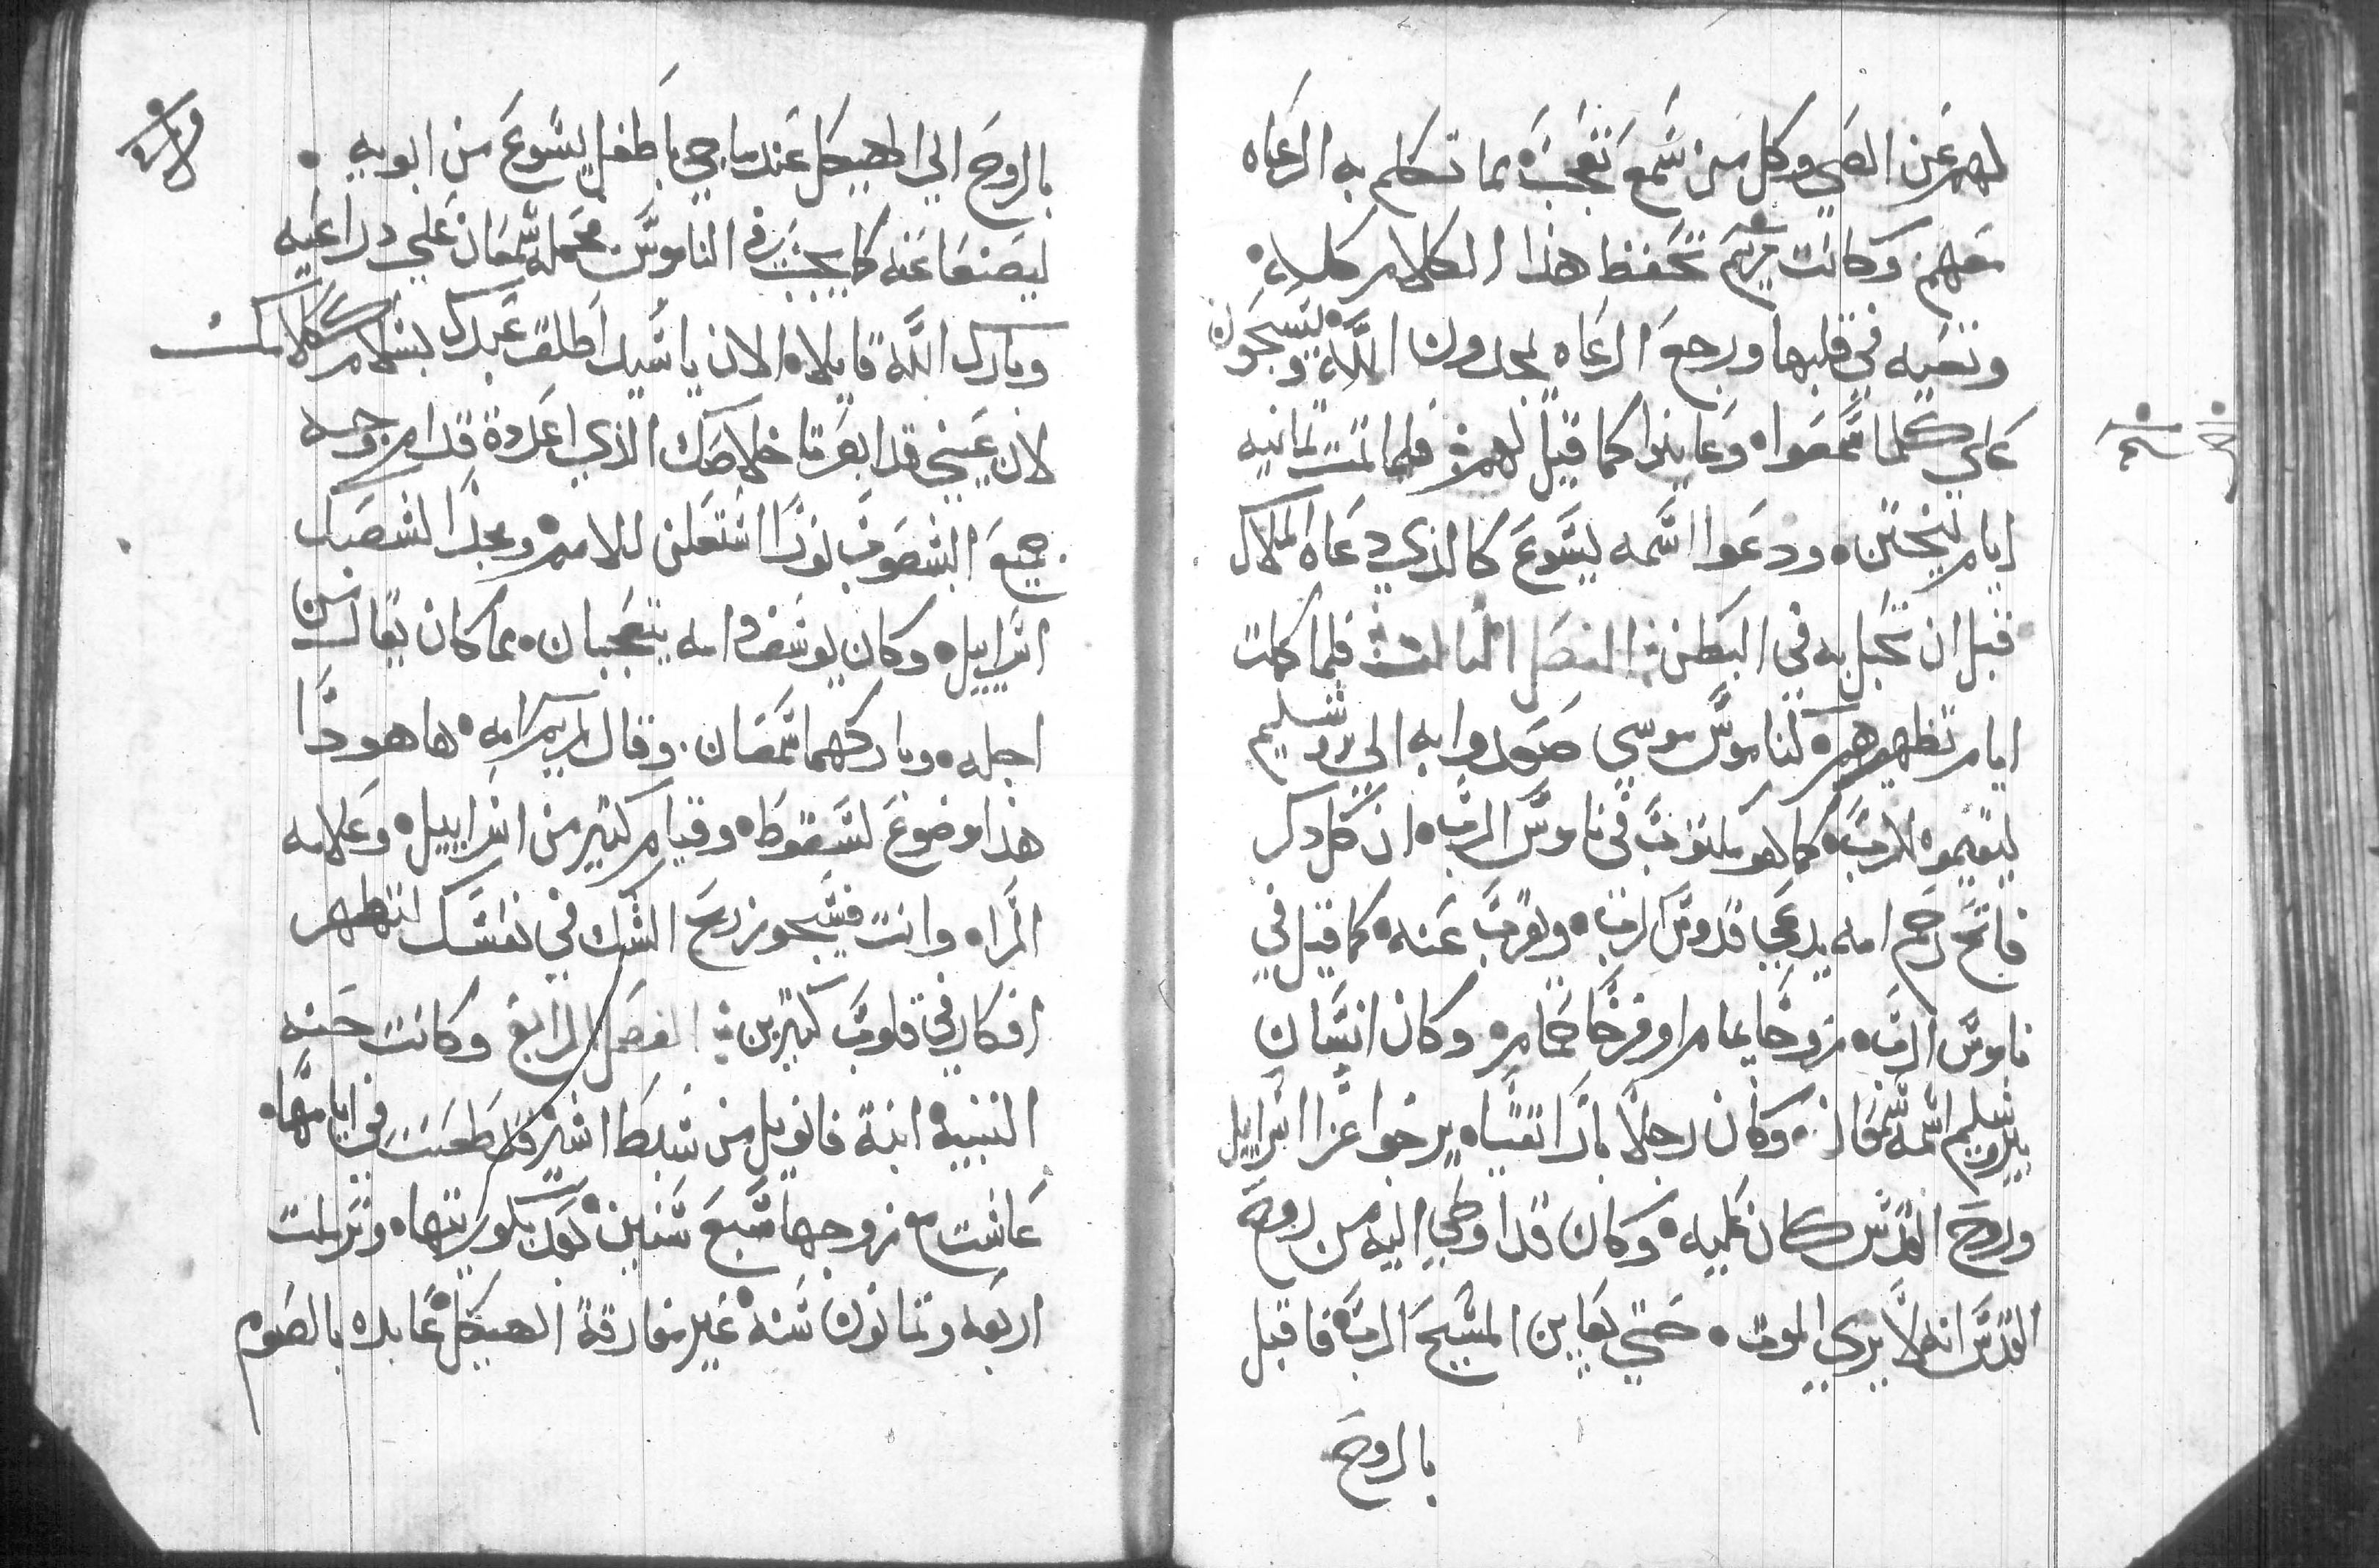 لهم عن الصبي وكل من سمع تعجب مما تكلم به الرعاه
معهم. وكانت مريم تحفظ هذا الكلام كله.
وتعيه في قلبها ورجع الرعاه يمجدون الله ويسبحون
علي كلما سمعوا وعاينوا كما قيل لهم فلما تمت تمانيه
ايام ليختتن. ودعوا اسمه يسوع كالذي دعاه الملاك
قبل ان تحبل به في البطن الفصل التالت فلما كملت
ايام تطهيرهم كناموس موسي صعدوا به الي يروشليم
ليقيموه للرب. كما هو مكتوب في ناموس الرب. ان كل دكر
فاتح رحم امه يدعي قدوس الرب. ويقرب عنه. كما قيل في
ناموس الرب. زوجا يمام او فرخا حمام. وكان انسان
بيروشليم اسمه سمعان. وكان رجلا بارا تقيا. يرجوا عزا اسراييل
وروح القدس كان عليه. وكان قد اوحي اليه من روح
القدس انه لا يري الموت. حتي يعاين المسيح الرب. فاقبل
بالروح
بالروح الي الهيكل عندما جي بالطفل يسوع من ابويه.
ليصنعا عنه كما يجب في الناموس فحمله سمعان علي دراعيه
وبارك الله قايلا. الان يا سيد اطلق عبدك بسلام ككلامك
لان عيني قد ابصرتا خلاصك الذي اعددة قدام وجه
جميع الشعوب نورا استعلن للامم. ومجدا لشعبك
اسراييل. وكان يوسف وامه يتعجبان. مما كان يقال من
اجله. وباركهما سمعان. وقال لمريم امه. ها هودا
هذا موضوع لسقوط. وقيام كتير من اسراييل. وعلامه
المراه. وانت فسيجوز رمح الشك في نفسك لتظهر
افكار في قلوب كتيرين الفصل الرابع وكانت حنه
النبية ابنة فانويل من سبط اشير قد طعنت في ايامها.
عاشت مع زوجها سبع سنين. بعد بكوريتها. وترملت
اربعه وتمانون سنه. غير مفارقة الهيكل. عابده بالصوم